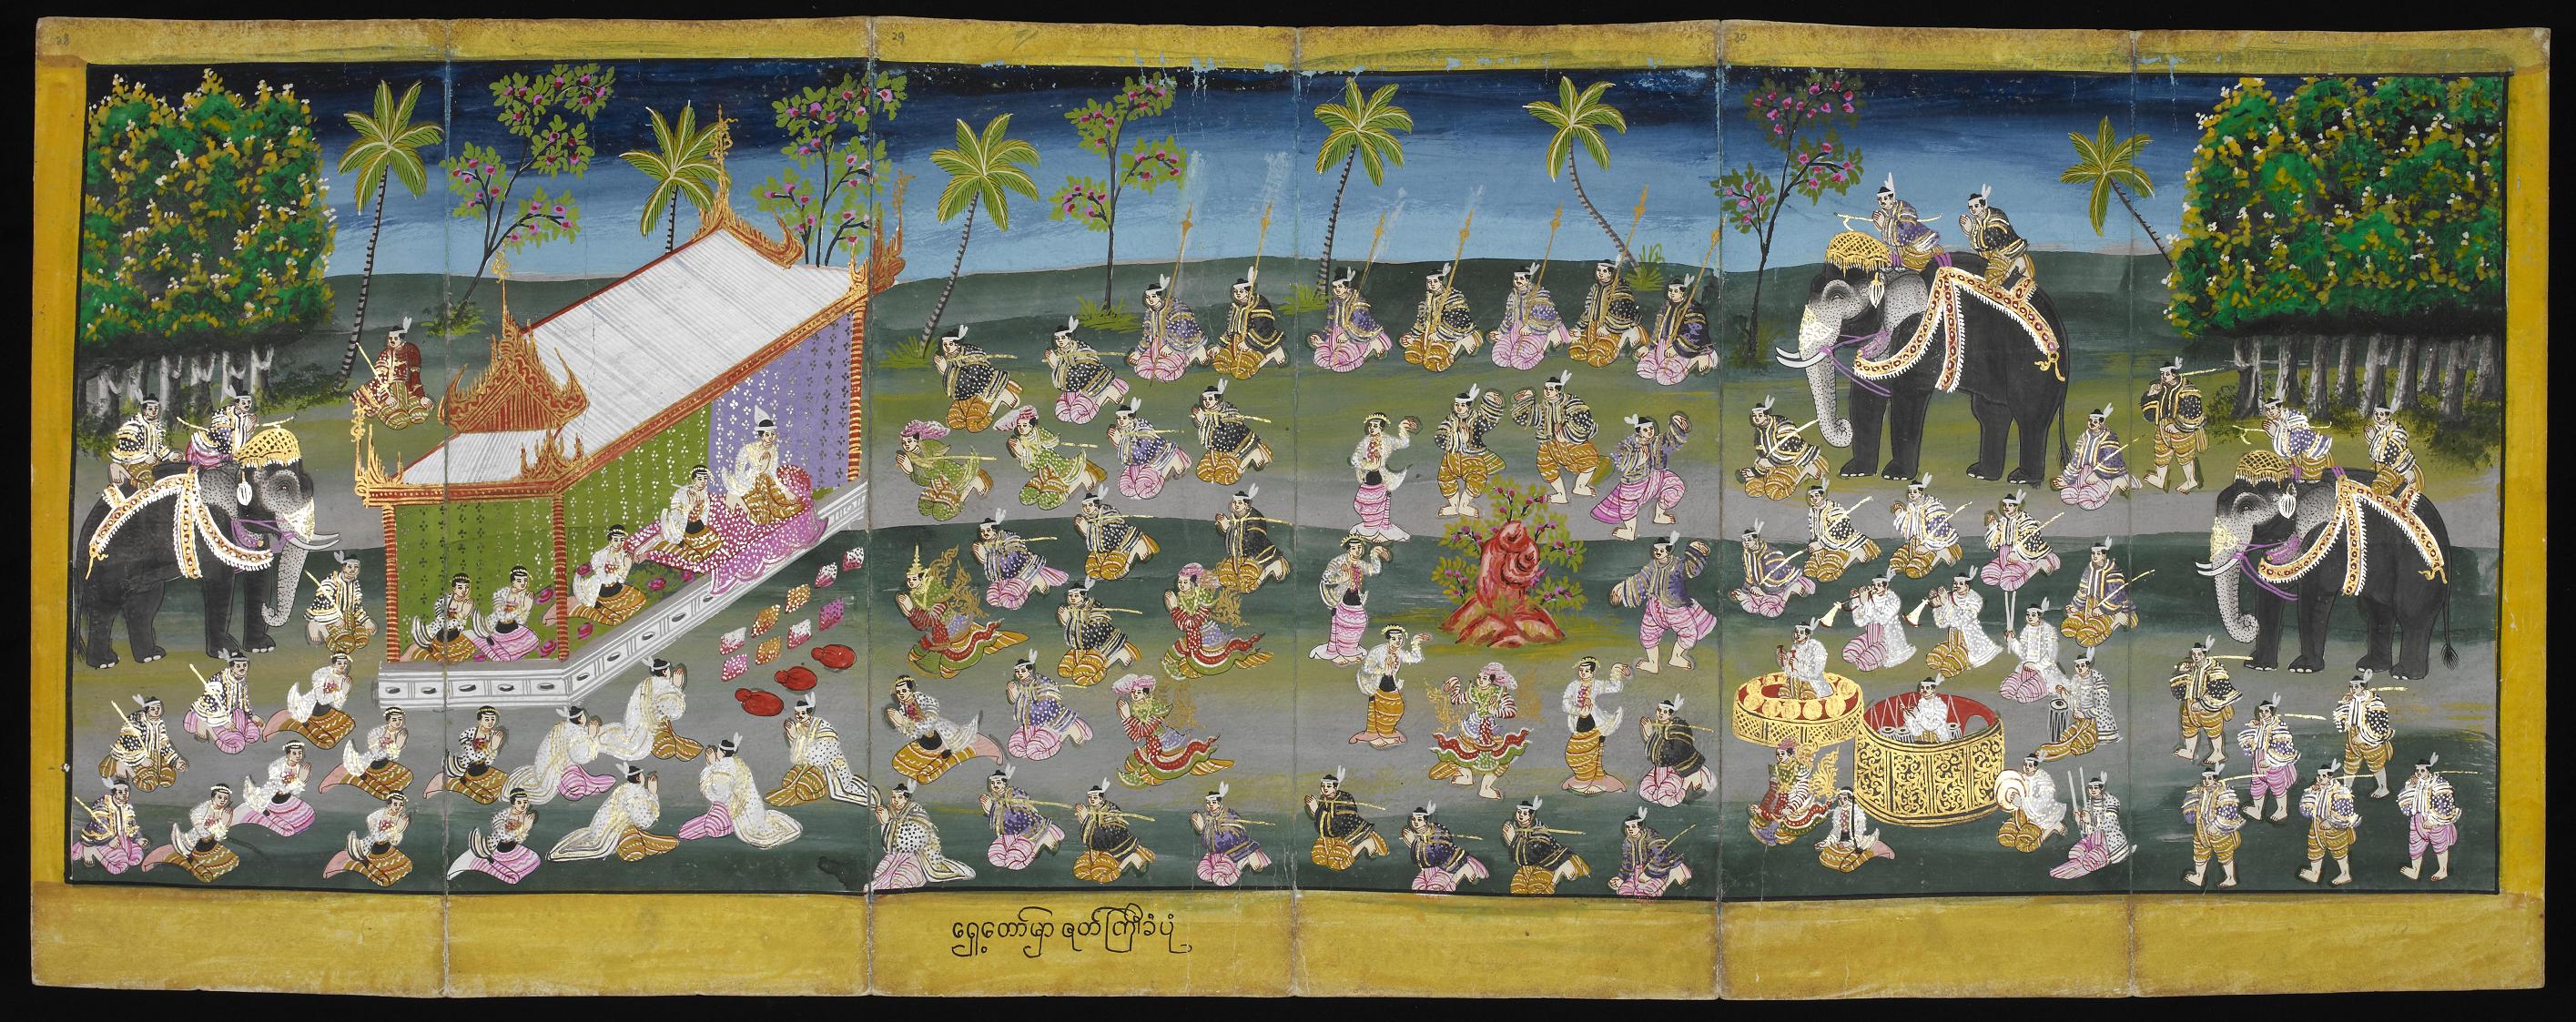 28
29
30
ရှေ့တော်မှာ ဇတ်ကြီးခံပုံ